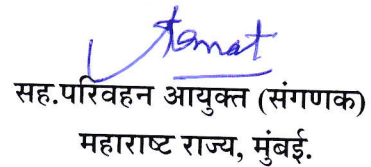 सह.परिवहन आयुक्त (संगणक)
महाराष्ट राज्य, मुंबई.